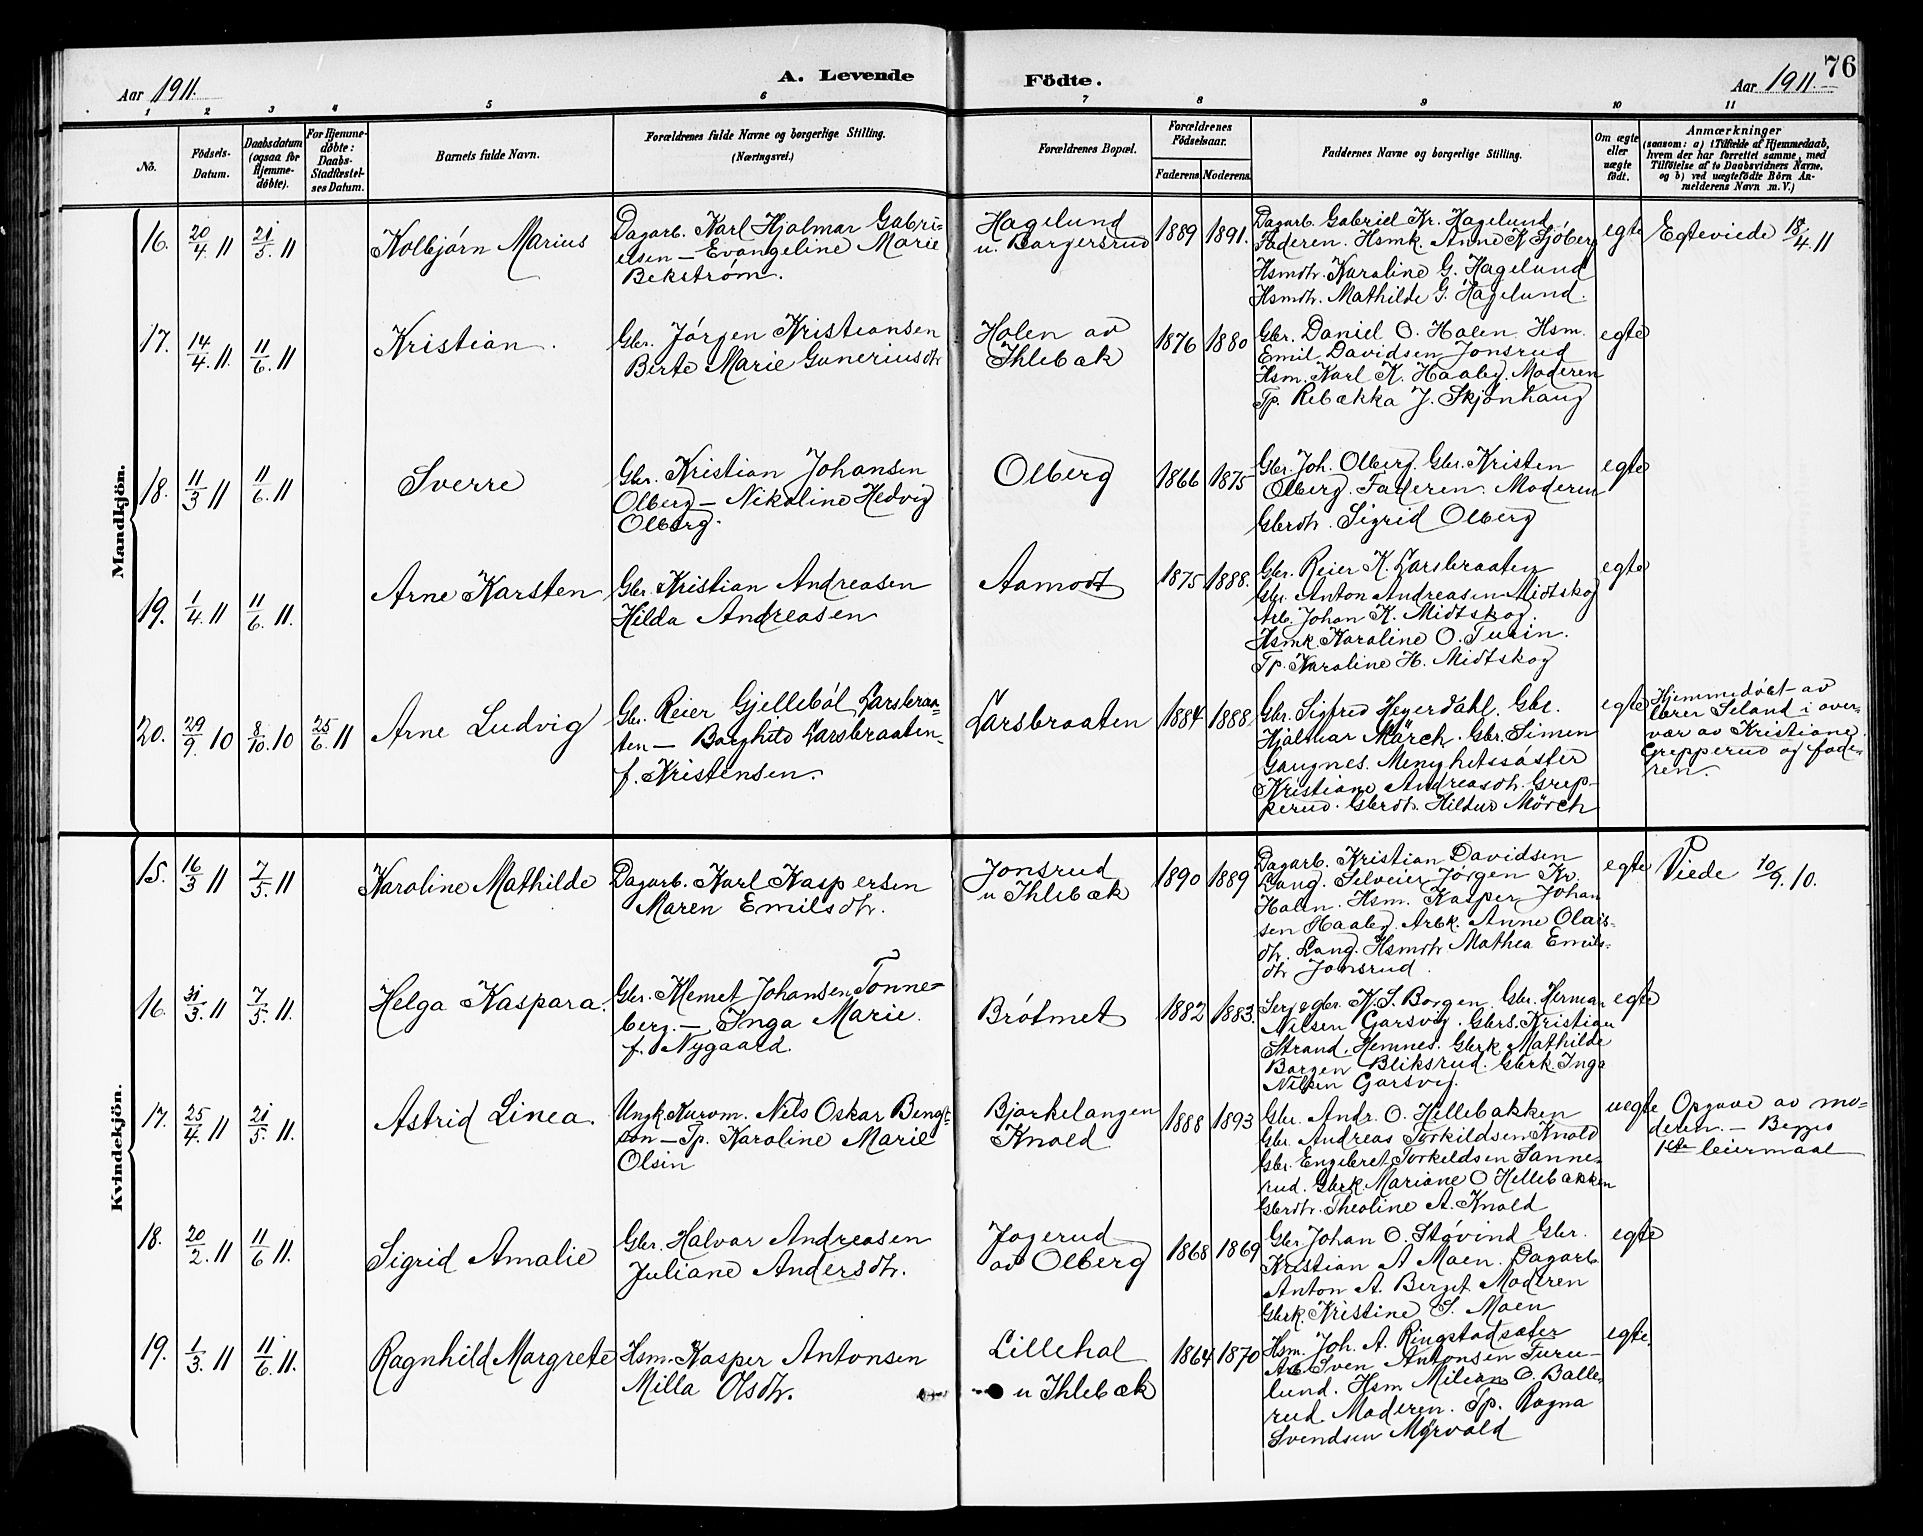 76
Aar 1911. A. Levende Födte. Aar 1911.
1 2 3 4 5 6 7 8 9 10 11
No.
Födsels-Datum.
Daabsdatum (ogsaa for Hjemme-döbte).
For Hjemme-döbte: Daabs-Stadfæstel-ses Datum.
Barnets fulde Navn.
Forældrenes fulde Navne og borgerlige Stilling.
(Næringsvei.)
Forældrenes Bopæl.
Forældrenes Födselsaar.
Faderens. Moderens.
Faddernes Navne og borgerlige Stilling.
Om ægte eller uægte födt.
Anmærkninger
(saasom: a) i Tilfælde af Hjemmedaab,
hvem der har forrettet samme, med
Tilföielse af to Daabsvidners Navne.
og b) ved uægtefödte Börn An-
melderens Navn m. V.)
Mandkjön.
16. 20/4 11 21/5 11 Kolbjörn Marius
Dagarb. Karl Hjalmar Gabri-
elsen — Evangeline Marie
Bekström.
Hagelund
u. Borgersrud
1889 1891.
Dagarb. Gabriel Kr. Hagelund
Faderen. Hsmk. Anne K Sjöberg
Hsmdtr. Karoline G. Hagelund
Hsmdtr. Mathilde G. Hagelund.
egte
Egteviede 18/4 11
17. 14/4 11. 11/6 11 Kristian.
Gbr. Jörgen Kristiansen
Birte Marie Guneriusdtr
Holen av
Ihlebæk
1876 1880
Gbr. Daniel O. Holen Hsm.
Emil Davidsen Jonsrud
Hsm. Karl K. Haaby. Moderen
Tp. Rebækka J. Skjönhaug
egte
18. 11/3 11 11/6 11 Sverre
Gbr. Kristian Johansen
Olberg — Nikoline Hedvig
Olberg.
Olberg
1866 1875
Gbr. Joh. Olberg. Gbr. Kristen
Olberg. Faderen. Moderen
Gbrdtr. Sigrid Olberg
egte
19. 1/4 11 11/6 11. Arne Karsten
Gbr. Kristian Andreasen
Hilda Andreasen
Aamodt
1875 1888.
Gbr. Reier K. Larsbraaten
Gbr. Anton Andreasen Midtskog
Arb. Johan K. Midtskog.
Hsmk. Karoline O. Turin.
Tp. Karoline H. Midtskog
egte
20. 29/9 10 8/10 10 25/6 11 Arne Ludvig
Gbr. Reier Gjelleböl Larsbraa-
ten — Borghild Larsbraaten
f. Kristensen.
Larsbraaten
1884 1888.
Gbr. Sigfred Heyerdahl. Gbr.
Hjalmar Mörch. Gbr. Simen
Gaugnes. Menighetssöster
Kristiane Andreasdtr. Grep-
perud. Gbrdtr. Hildur Mörch
egte
Hjemmedöbt av
lærer Seland i over-
vær av Kristiane
Grepperud og fade-
ren.
Kvindekjön.
15. 16/3 11 7/5 11 Karoline Mathilde
Dagarb. Karl Kaspersen
Maren Emilsdtr.
Jonsrud
u Ihlebæk
1890 1889
Dagarb. Kristian Davidsen
Lang. Selveier Jörgen Kr.
Holen. Hsm. Kasper Johan
sen Haaby. Arbk. Anne Olais-
dtr. Lang. Hsmdtr Mathea Emils-
dtr Jonsrud.
egte
Viede 10/9. 10.
16. 31/3. 11 7/5. 11. Helga Kaspara.
Gbr. Klemet Johansen Tonne-
berg. — Inga Marie
f. Nygaard.
Brötmet
1882 1883.
Serg. Gbr. K. S. Borgen. Gbr. Herman
Nilsen Garsvig. Gbrs. Kristian
Strand, Hemnes. Gbrk Mathilde
Borgen Bliksrud. Gbrk. Inga
Nilsen Garsvig.
egte
17. 25/4. 11 21/5. 11. Astrid Linea.
Ungk. Kurvm. Nils Oskar Bengt-
son — Tp. Karoline Marie
Olsin
Bjørkelangen
Knold
1888 1893
Gbr. Andr. O. Hillebakken
Gbr. Andreas Torkildsen Knold
Gbr. Engebret Torkildsen Sanne-
rud. Gbrk. Mariane O Hillebækken
Gbrdtr. Theoline A. Knold
uegte
Opgave av mo-
deren. — Begges
1ste leiermaal
18. 20/2. 11 11/6 11. Sigrid Amalie
Gbr. Halvor Andreasen
Juliane Andersdtr.
Jogerud
av Olberg
1868 1869
Gbr. Johan O. Stövind Gbr.
Kristian A Moen. Dagarb
Anton A. Berget Moderen
Gbrk. Kristine S. Moen
egte
19. 1/3. 11 11/6. 11. Ragnhild Margrete
Hsm. Kasper Antonsen
Milla Olsdtr.
Lillehol
u Ihlebæk
1864 1870
Hsm. Joh. A. Ringstadsæter
Arb Sven Antonsen Furu-
lund. Hsm Milian O. Balle-
rud. Moderen. Tp. Ragna
Svendsen Myrvold
egte.